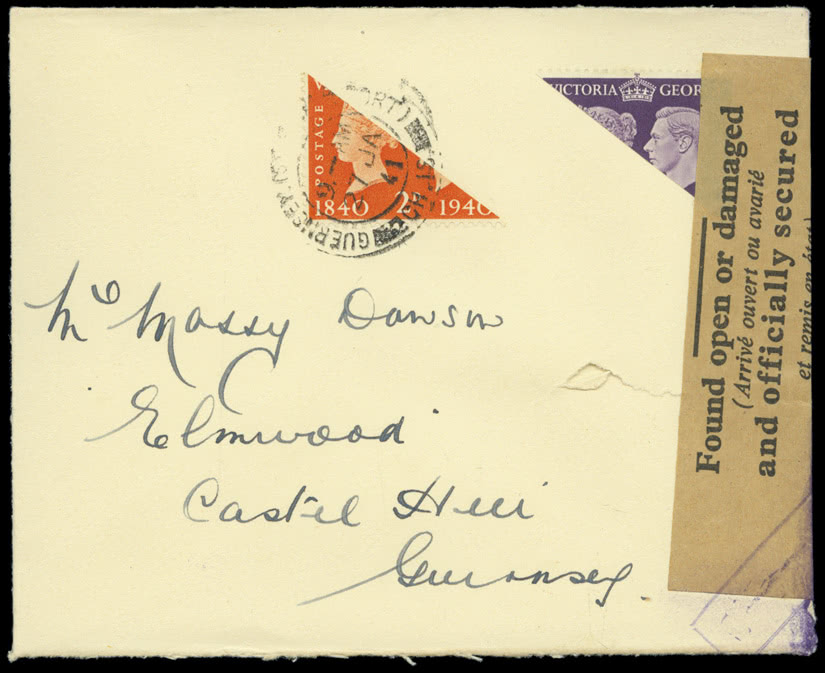 POSTAGE
1840 2D 1940
GUERNSEY
27 JA
41
VICTORIA GEOR
Found open or damaged
(Arrivé ouvert ou avarié
and officially secured
et remis en état)
Massy Dawson
Elmwood
Castel Hill
Guernsey.